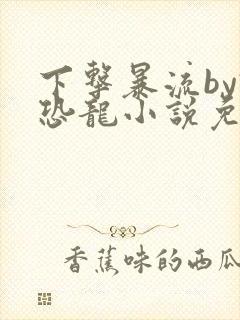 下擊暴流by
恐龍小說免
香蕉味的西瓜